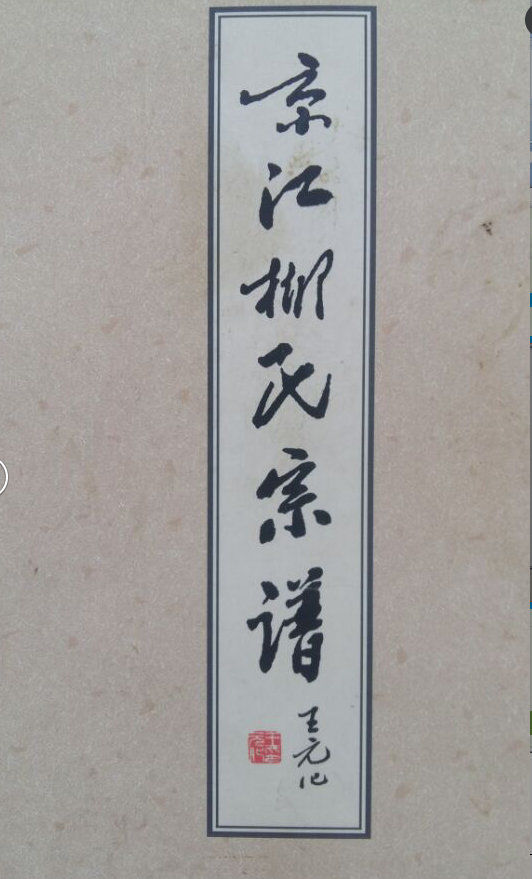 京江柳氏宗谱
王元化